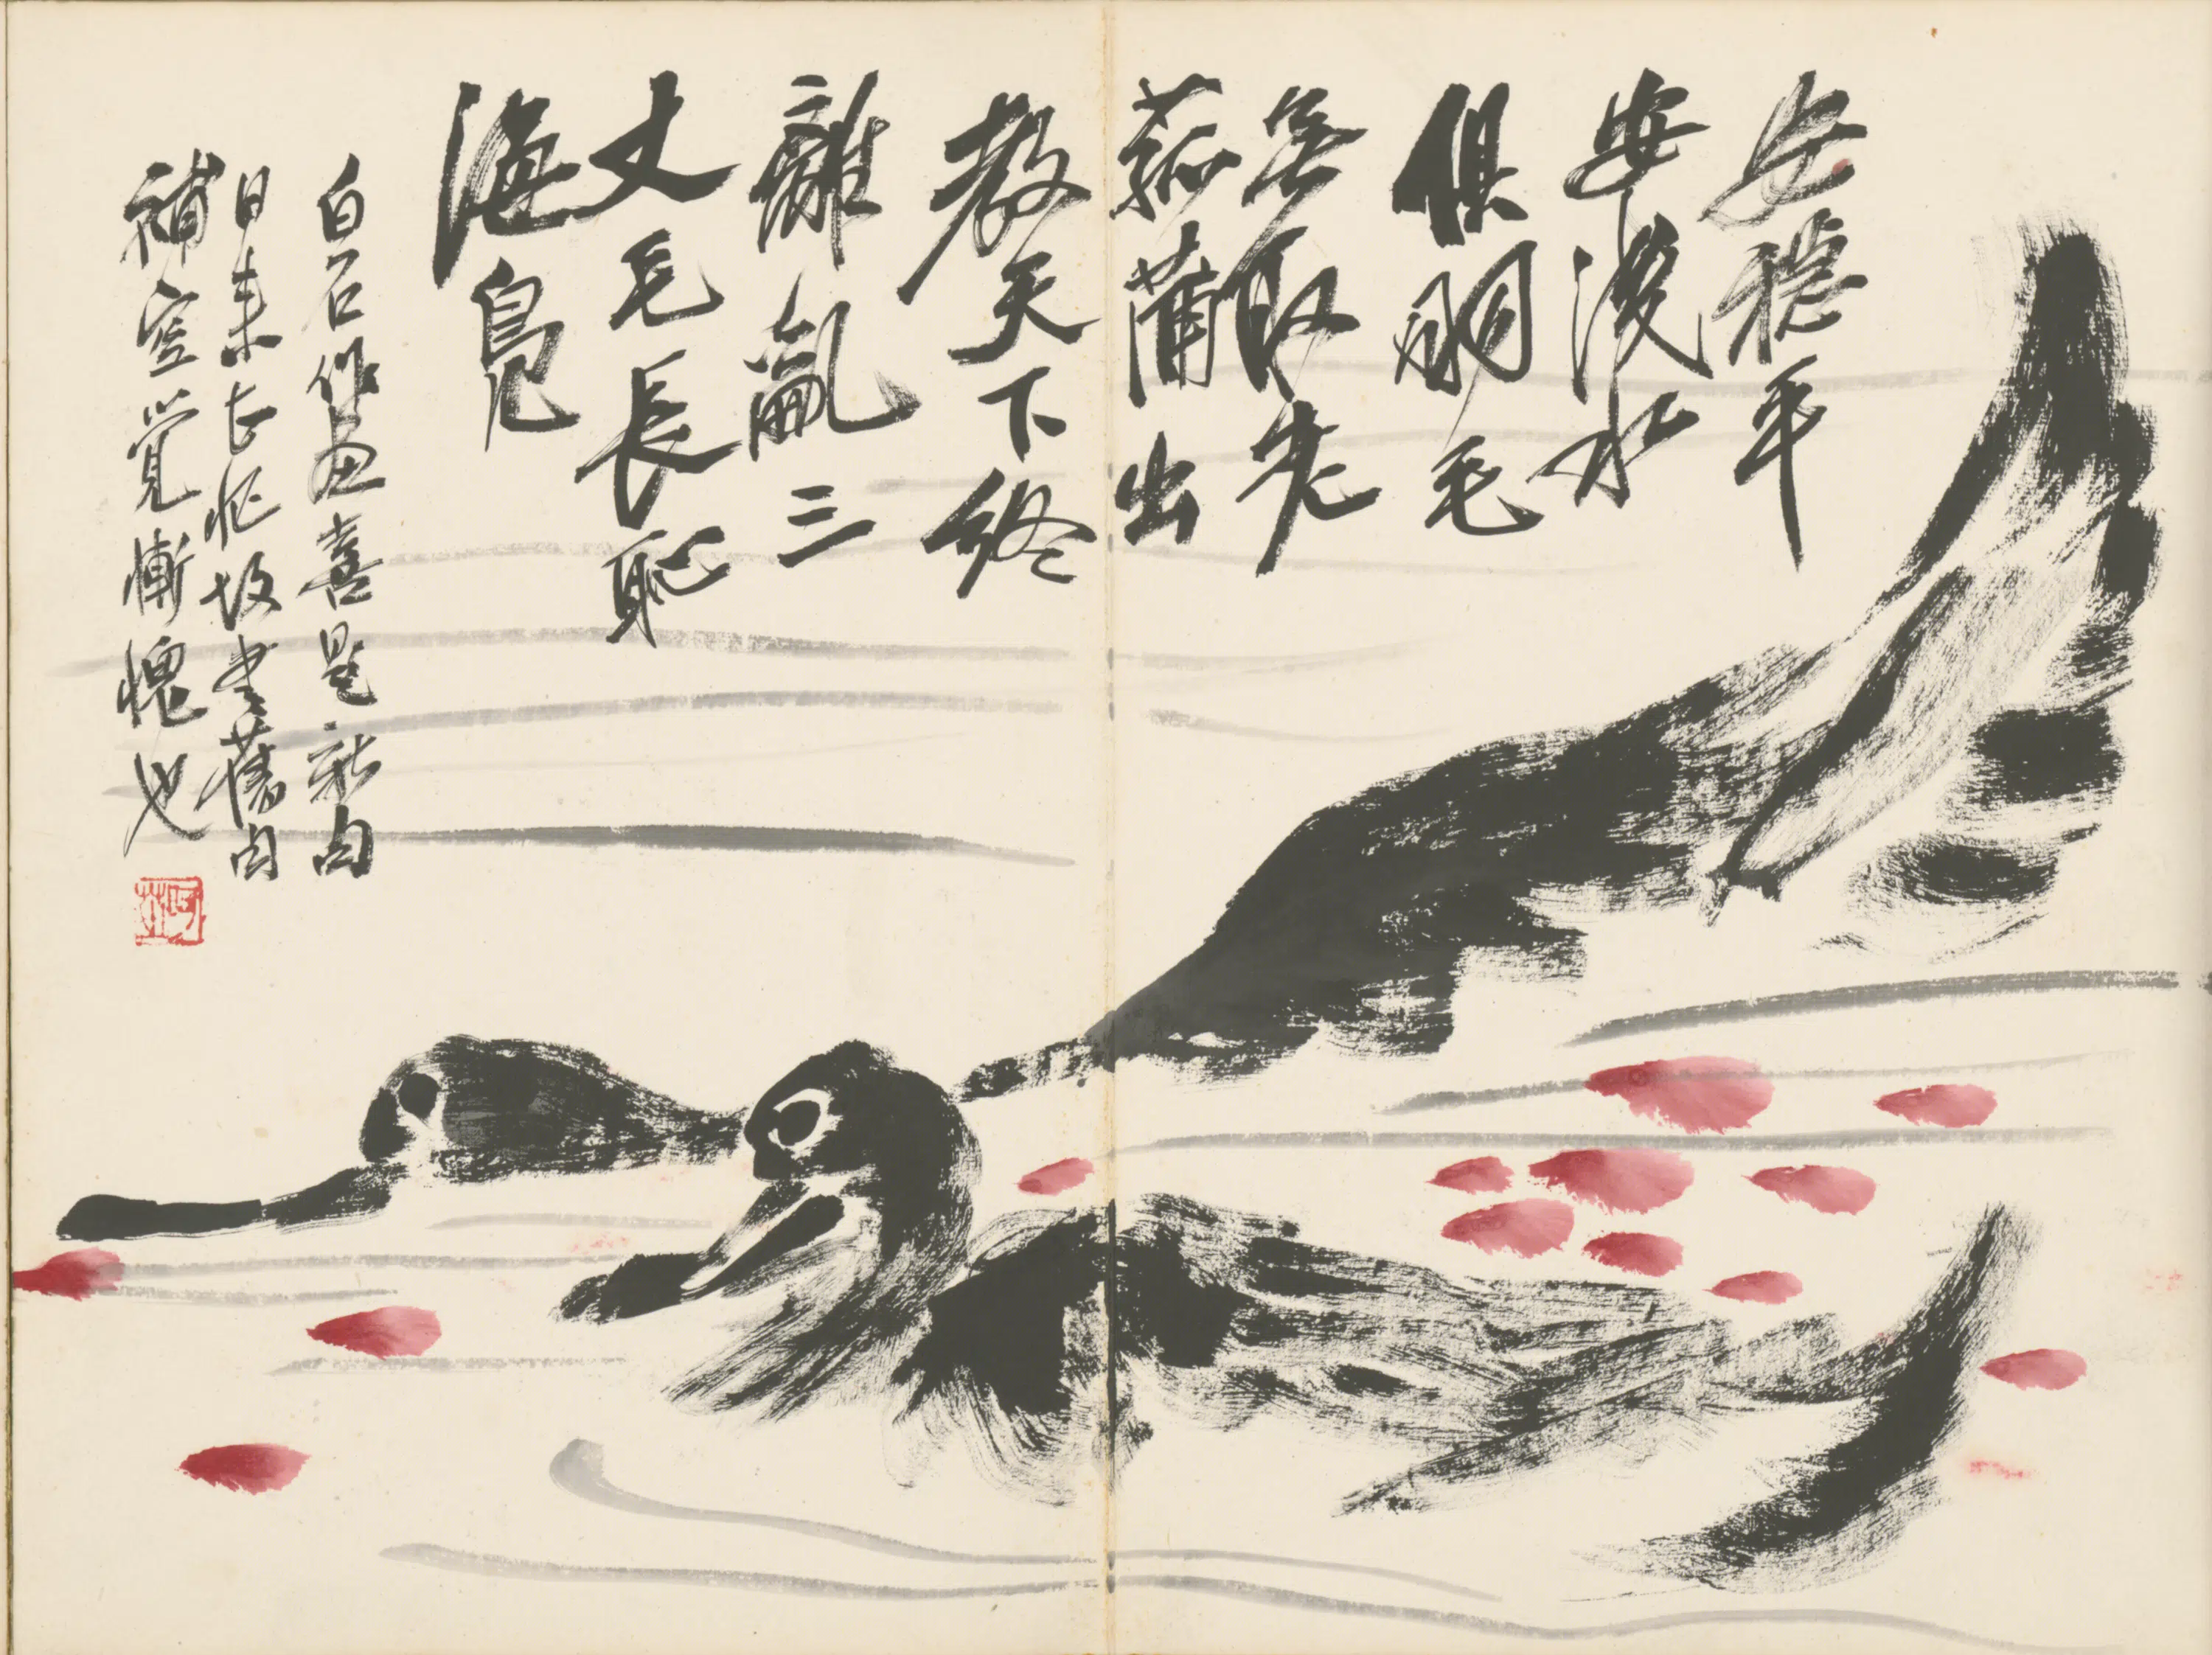 安穩平
安淺水
俱羽毛
無取老
菰蒲出
教天下終
離亂三
丈毛長恥
海鳧
白石作畫喜題新句
日來忙故書舊句
補空覺慚愧也
阿芝